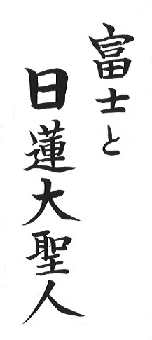 富士と
日蓮大聖人